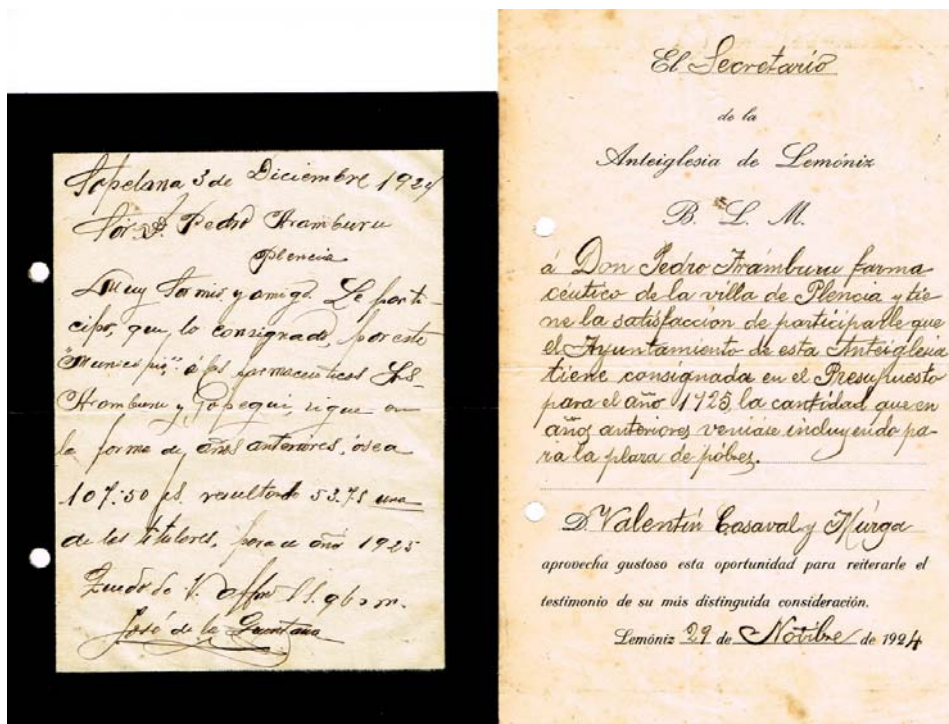 Sopelana 3 de Diciembre 1924
Sor. D. Pedro Aramburu
Plencia
Muy Sor mio y amigo. Le parti-
cipo, que lo consignado, por este
"Municipio" á los farmaceuticos
Aramburu y Gopegui, sigue en
la forma de años anteriores, ósea
107:50 ps. resultando 53.75 una
de las titulares, para el año 1925
Quedo de V. affmo S.S. q b s m.
José de la Quintana
El Secretario
de la
Anteiglesia de Lemóniz
B. L. M.
á Don Pedro Arámburu farma
céutico de la villa de Plencia y tie-
ne la satisfacción de participarle que
el Ayuntamiento de esta Anteiglesia
tiene consignada en el Presupuesto
para el año 1925, la cantidad que en
años anteriores veniase incluyendo pa-
ra la plaza de póbres.
D. Valentín Casaval y Múrga
aprovecha gustoso esta oportunidad para reiterarle el
testimonio de su más distinguida consideración.
Lemóniz 29 de Novibre de 1924